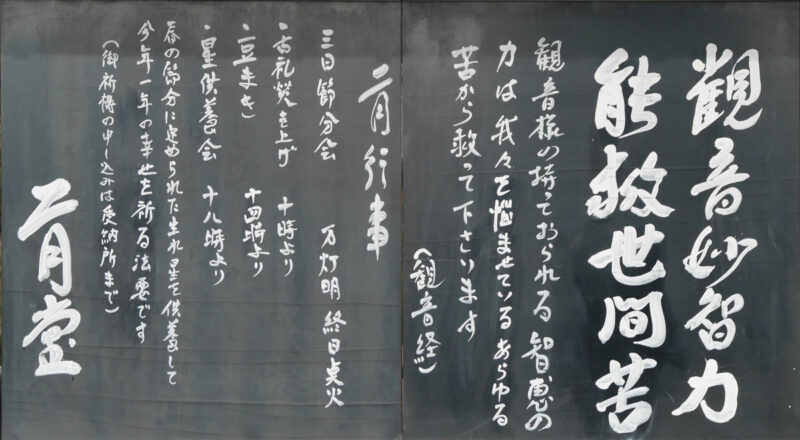 觀音妙智力
能救世間苦
観音様の持っておられる智恵の
力は我々を悩ませているあらゆる
苦から救って下さいます
(観音経)
二月行事
三日節分会　万灯明終日点火
・古札焚き上げ　十時より
・豆まき　十四時より
・星供養会　十八時より
春の節分に定められた生れ星を供養して
今年一年の幸せを祈る法要です
(御祈祷の申し込みは受納所まで)
二月堂